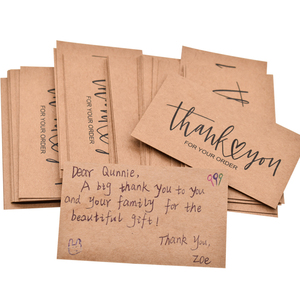 FOR YOUR ORDER
thank you
FOR YOUR ORDER
Dear Qunnie,
A big thank you to you
and your family for the
beautiful gift!
Thank you,
Zoe